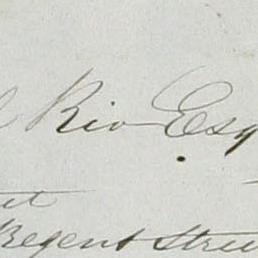 Rio Esq
Regent Street